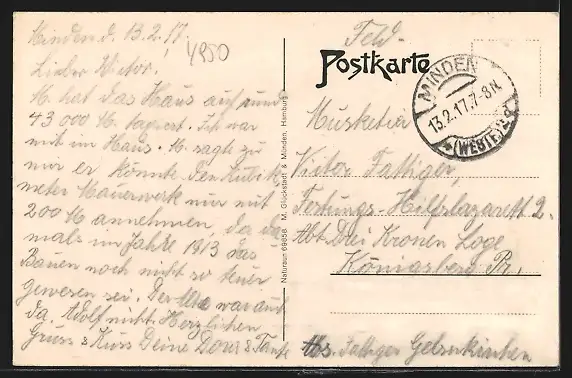 Minden d. 13.2.17.
4250
Lieber Victor.
M. hat das Haus auf rund
43 000 M. taxiert. Ich war
mit im Haus. M. sagte zu
mir er könnte den Kubik
meter Mauerwerk nur mit
200 M annehmen, da da
mals im Jahre 1913 das
Bauen noch nicht so teuer
gewesen sei. Der war auch
da. Adolf nicht. Herzlichen
Gruss & Kuss Deine & Tante
Naturaun 69858 M. Glückstadt & Münden, Hamburg
Feld-
Postkarte
MINDEN
13.2.17.7-8N.
(WESTF.)
Musketier
Victor Fattiger,
Festungs-Hilfslazarett 2.
Abt. Drei Kronen Loge
Königsberg Pr.
Abs. Fattiger Gelsenkirchen